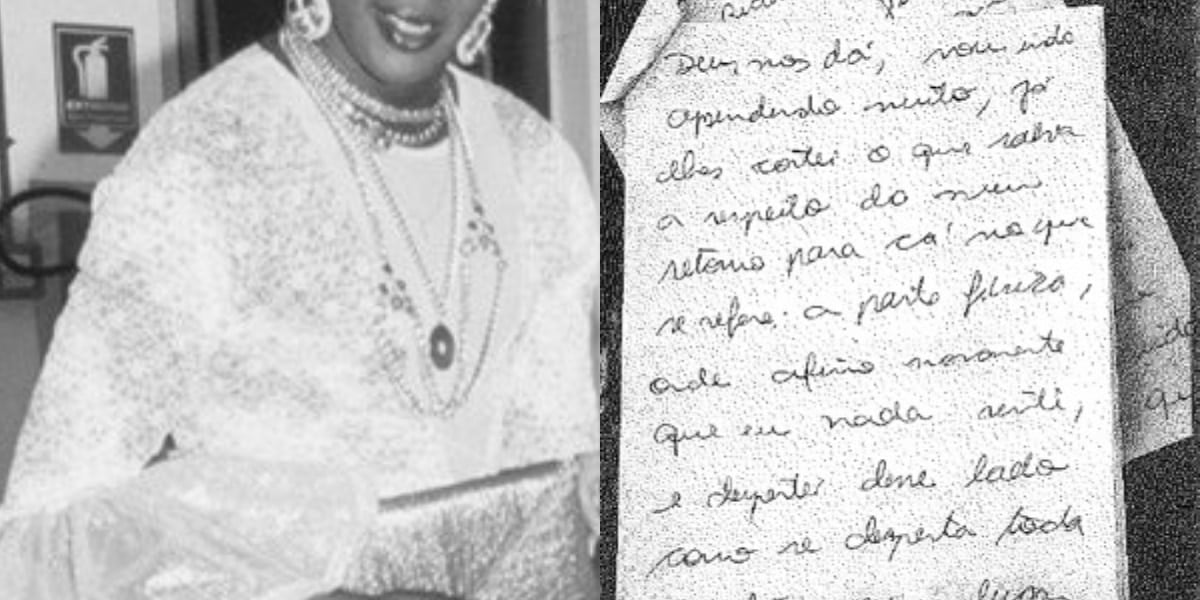 EXTINTOR
Deus, nos dá, vou indo
aprendendo muito, já
lhes contei o que sabia
a respeito do meu
retorno para cá no que
se refere a parte física,
onde afirmo novamente
que eu nada senti,
e despertei desse lado
como se desperta toda